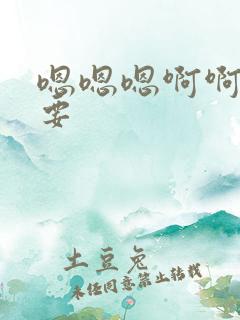 嗯嗯嗯啊啊
要
土豆兔
未经同意禁止转载